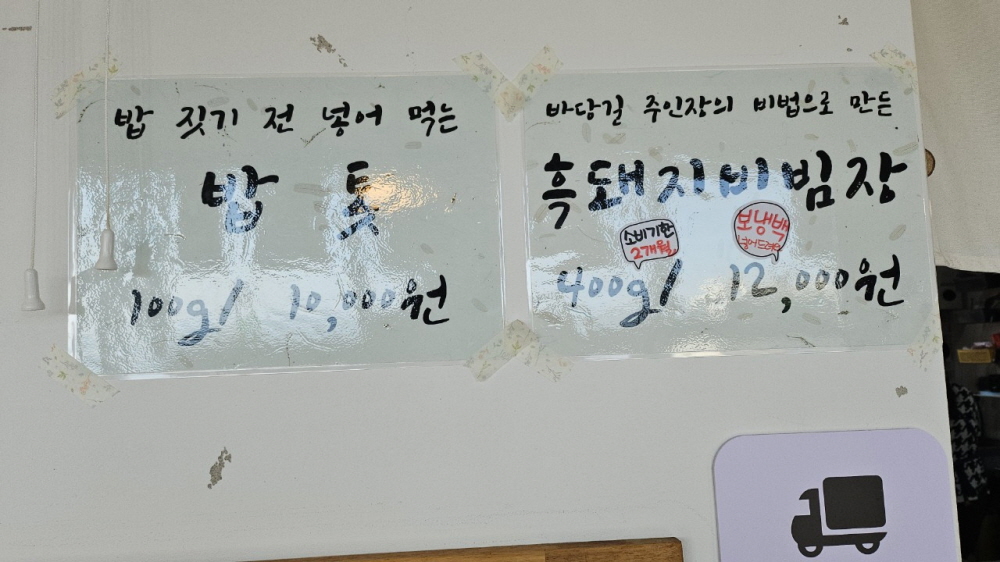 밥 짓기 전 넣어 먹는
밥 톳
100g/ 10,000원
바당길 주인장의 비법으로 만든
흑돼지비빔장
소비기한
2개월
보냉백
넣어드려요
400g/ 12,000원